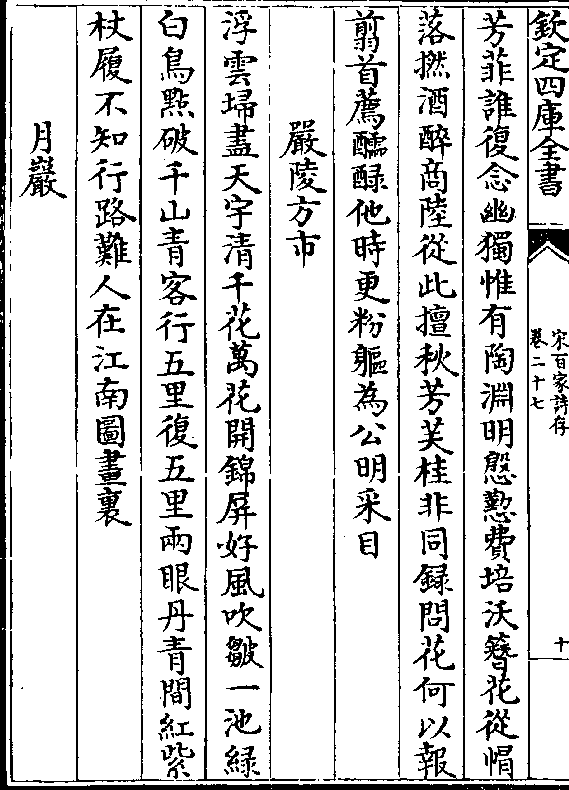 欽定四庫全書
宋百家詩存
卷二十七
十
芳菲誰復念幽獨惟有陶淵明慇懃費培沃簪花從帽
落撚酒醉商陸從此擅秋芳芙桂非同録問花何以報
翦首薦醽醁他時更粉軀為公明采目
嚴陵方市
浮雲埽盡天宇清千花萬花開錦屏好風吹皺一池綠
白鳥點破千山青客行五里復五里兩眼丹青間紅紫
杖履不知行路難人在江南圖畫裏
月巖